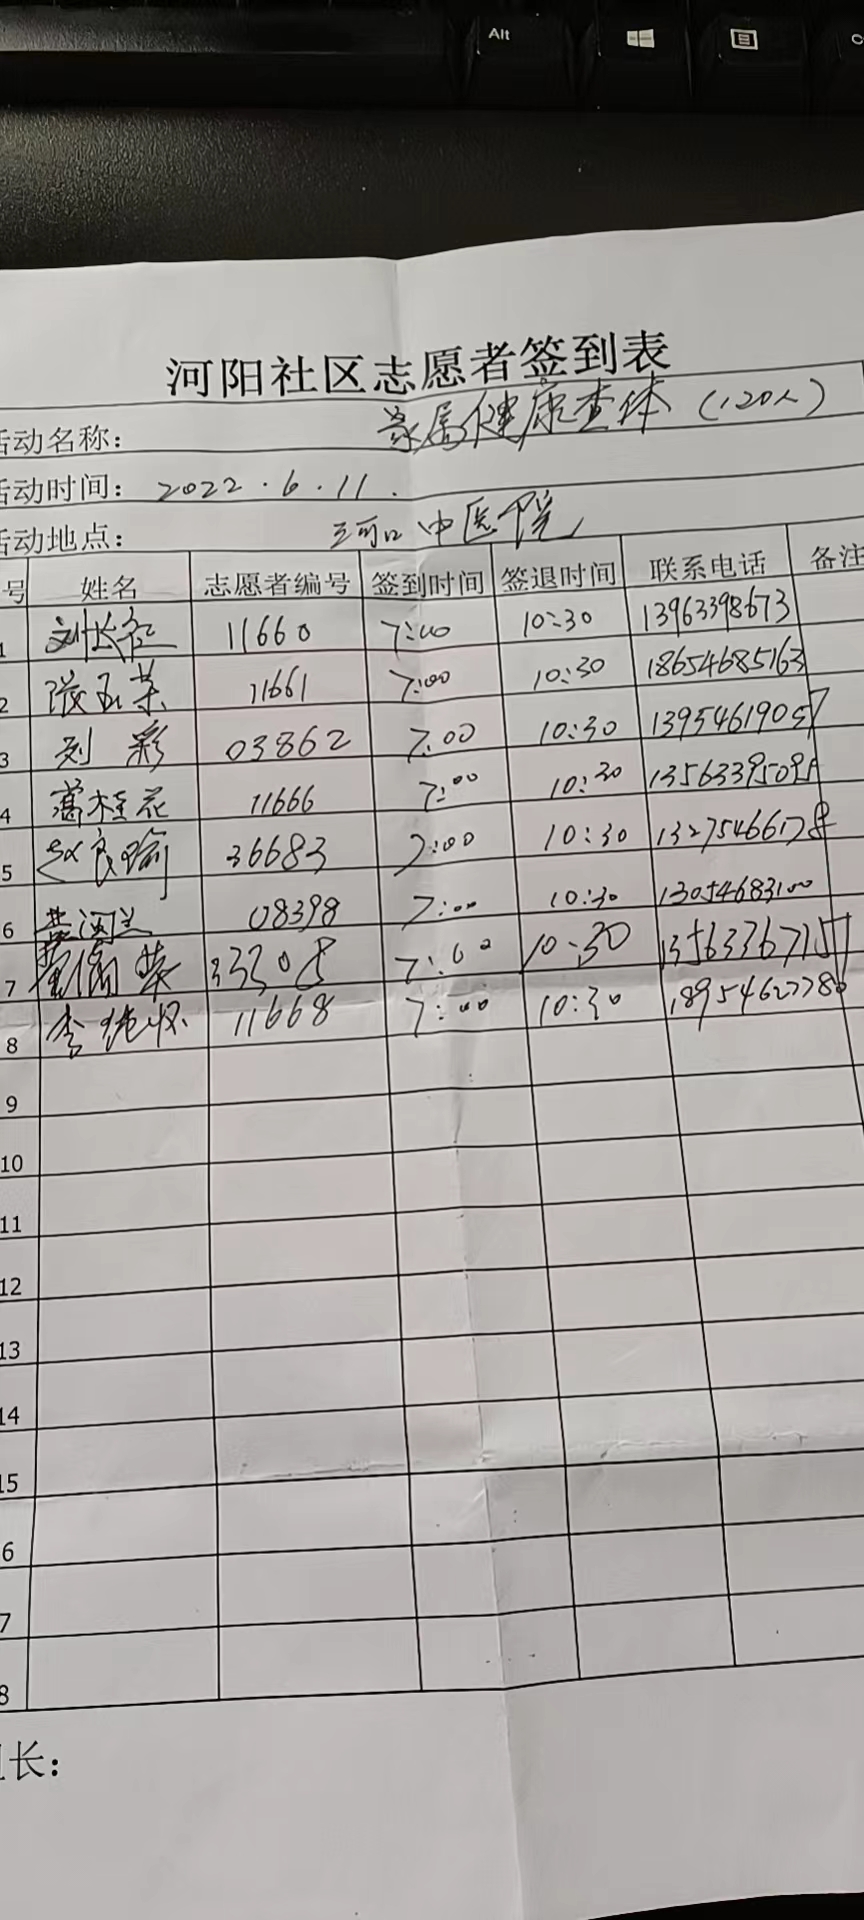 Alt
河阳社区志愿者签到表
活动名称： 家属健康查体（120人）
活动时间：2022.6.11.
活动地点： 河口中医院
号 姓名 志愿者编号 签到时间 签退时间 联系电话 备注
1 刘长红 11660 7:00 10:30 13963398673
2 张玉荣 11661 7:00 10:30 18654685163
3 刘彩 03862 7:00 10:30 13954619057
4 葛桂花 11666 7:00 10:30
5 赵良瑜 36683 7:00 10:30
6 08398 7:00 10:30 13054683100
7 33308 7:00 10:30 13563367157
8 李 11668 7:00 10:30
9
10
11
12
13
14
15
6
7
8
长：